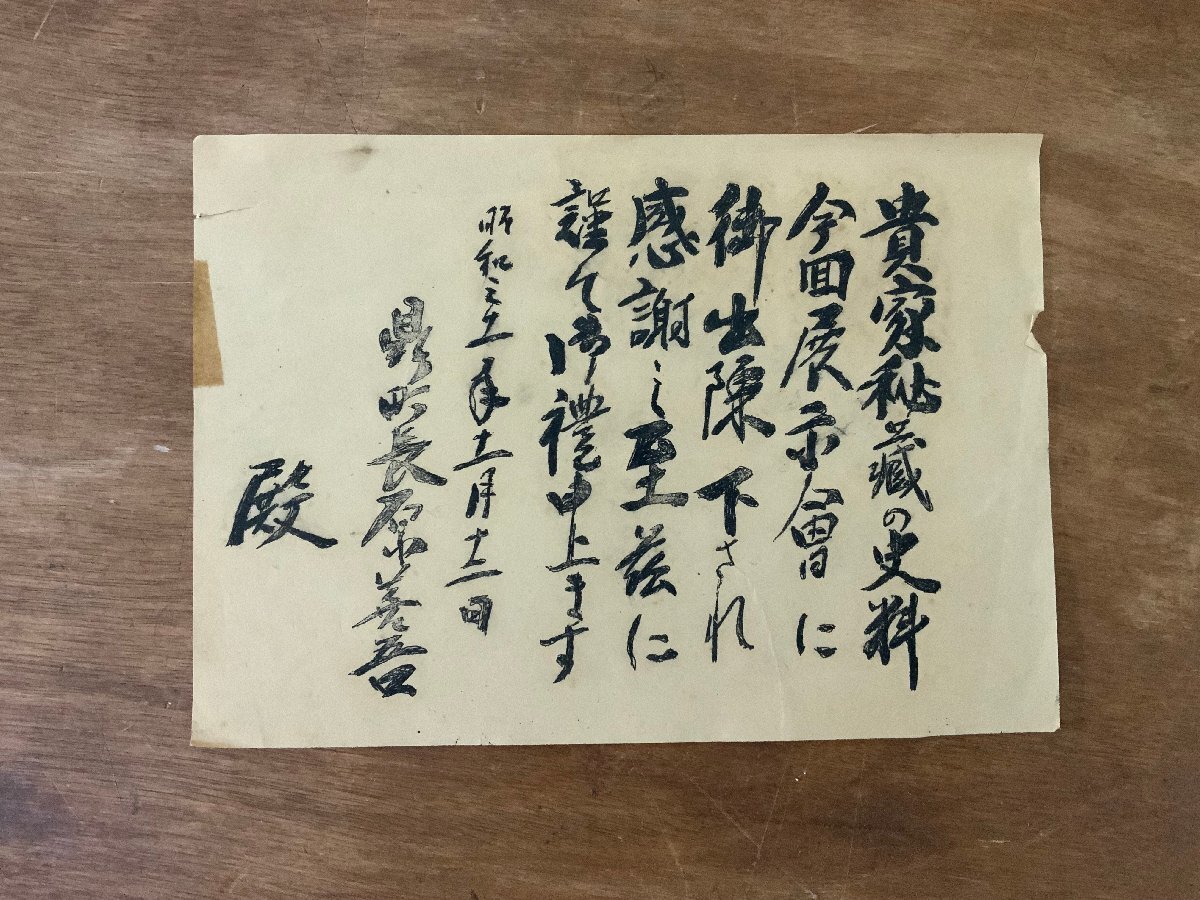 貴家秘藏の史料
今回展示會に
御出陳下され
感謝之至茲に
謹て御禮申上ます
昭和三十一年十一月十二日
鼎町長原善吾
殿